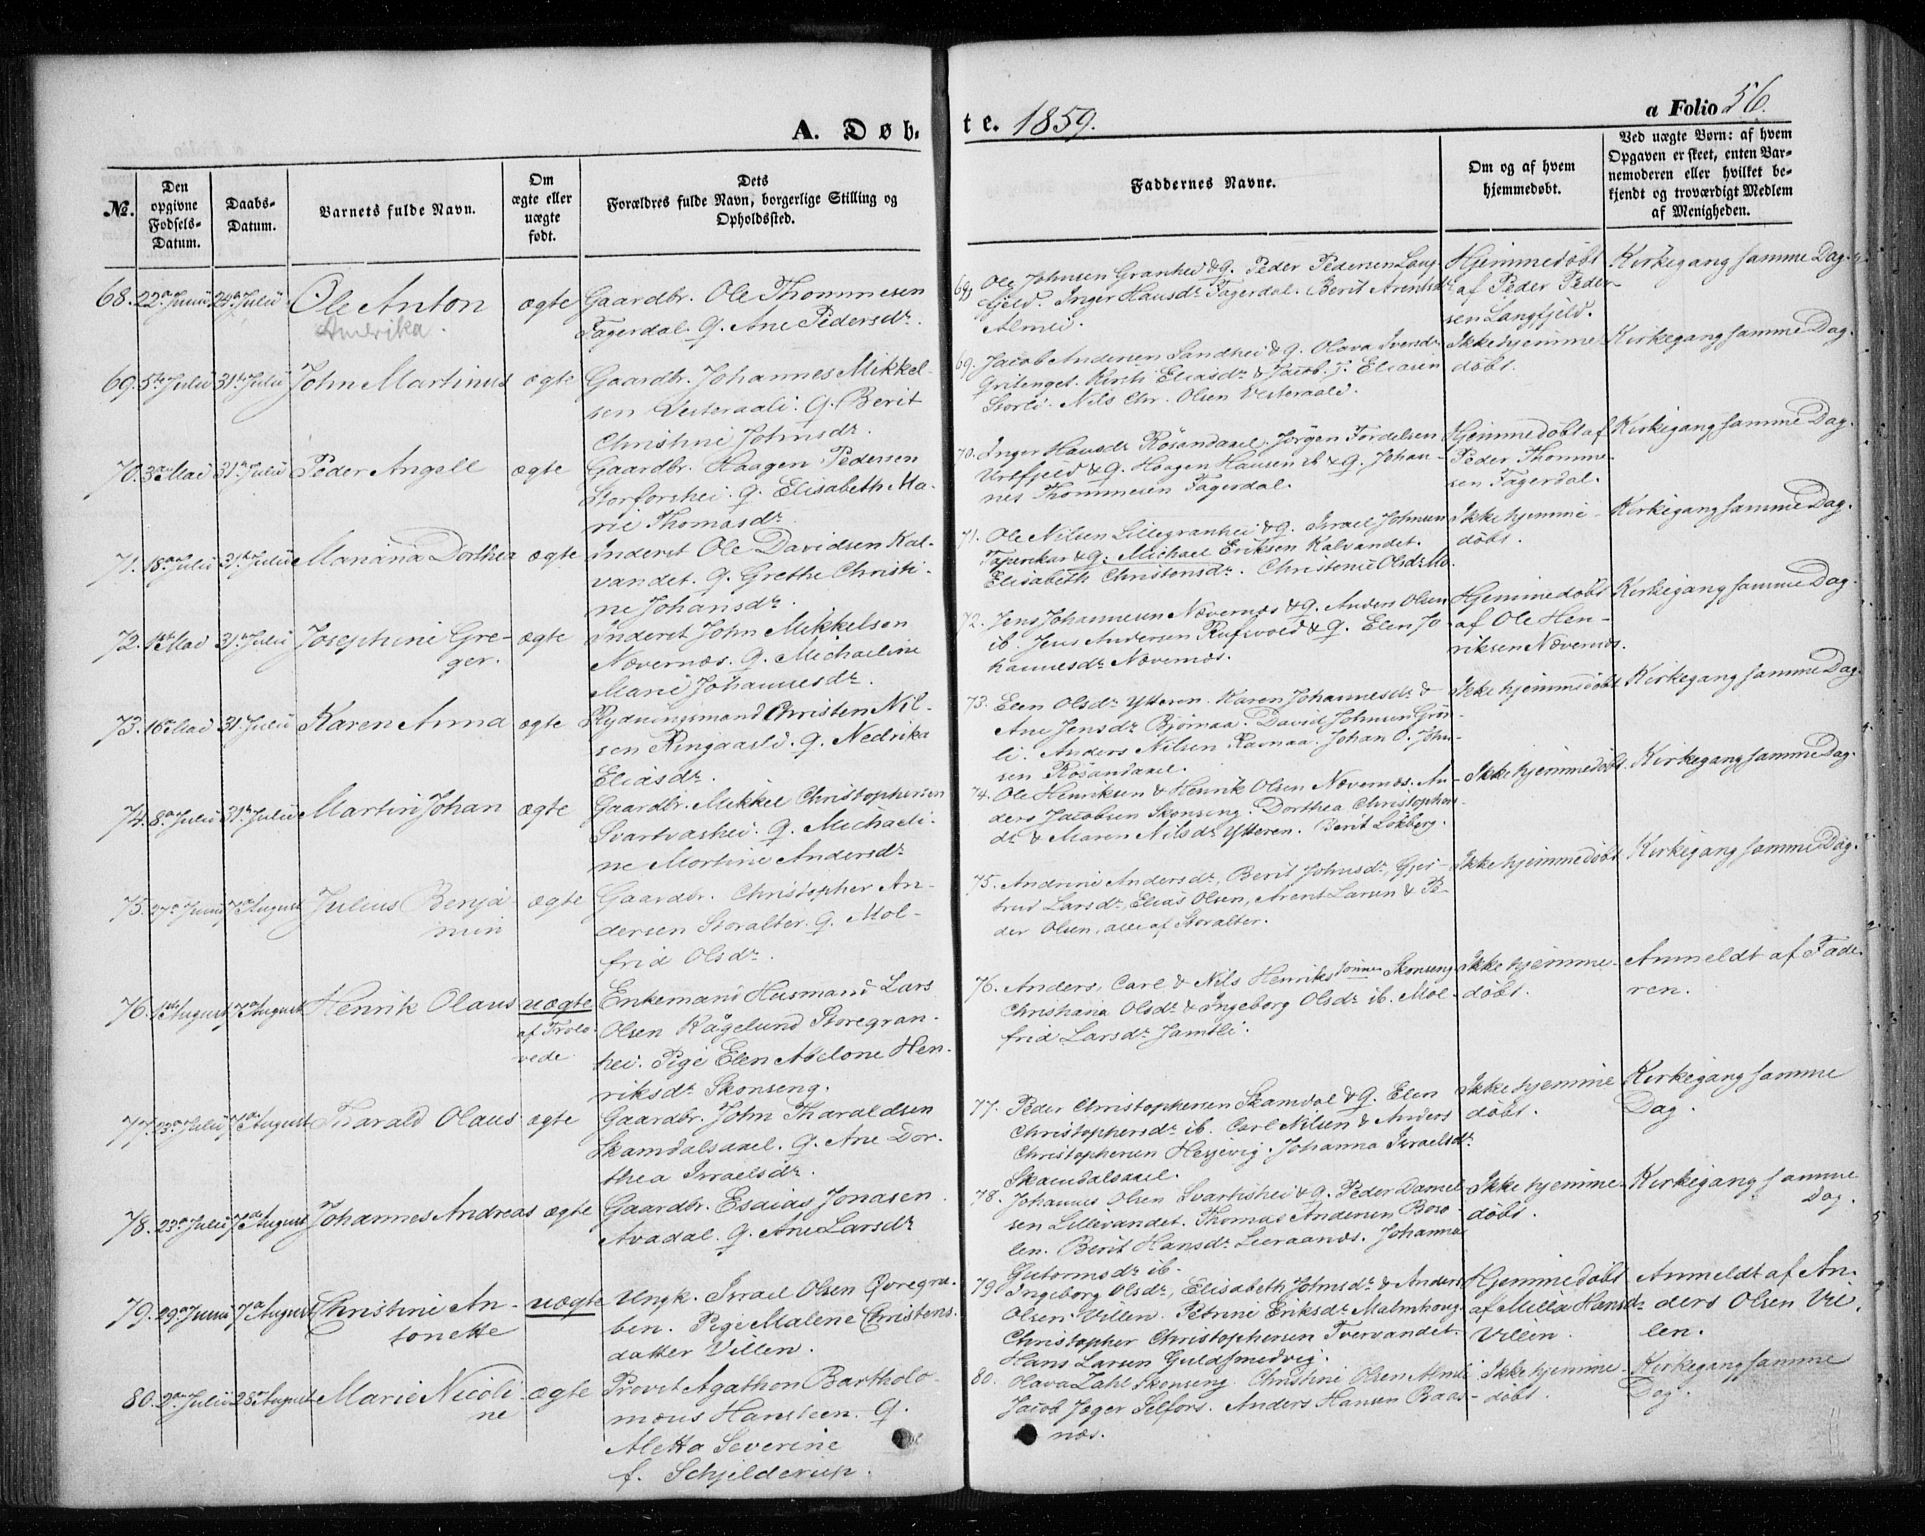 A. Døb-
te. 1859.
a Folio 56.
No.
Den opgivne Fødsels-Datum.
Daabs-Datum.
Barnets fulde Navn.
Om ægte eller uægte født.
Dets Forældres fulde Navn, borgerlige Stilling og Opholdssted.
Faddernes Navne.
Om og af hvem hjemmedøbt.
Ved uægte Børn: af hvem Opgaven er skeet, enten Barnemoderen eller hvilket bekjendt og troværdigt Medlem af Menigheden.
68. 22de Junii 24de Julii Ole Anton ægte Gaardbr. Ole Thommesen
Amerika. Fagerdal. Q. Ane Pedersdr.
68. Ole Johnsen Granhei & Q. Peder Pedersen Lang-
fjeld. Inger Hansdr Fagerdal. Berit Arentsdr
Almli.
Hjemmedøbt
af Peder Peder-
sen Langfjeld.
Kirkegang samme Dag.
69. 5te Julii 31te Julii John Martinus ægte Gaardbr. Johannes Mikkel-
sen Vesteraali. Q. Berit
Christine Johnsdr.
69. Jacob Andersen Sandhei & Q. Olava Iversdr
Gritenget. Kirsti Eliasdr & Jacob J. Eliasen
Storli. Nils Chr. Olsen Vesteraali.
Ikke hjemme
døbt.
Kirkegang samme Dag.
70. 3die Mai 31te Julii Peder Angell ægte Gaardbr. Haagen Pedersen
Storforshei. Q. Elisabeth Ma-
rie Thomasdr.
70. Inger Hansdr Røsandaxel. Jørgen Fordelsen
Urtfjeld & Q. Haagen Hansen ib & Q. Johan-
nes Thommesen Fagerdal.
Hjemmedøbt af
Peder Thomme-
sen Fagerdal.
Kirkegang samme Dag.
71. 18de Julii 31te Julii Mariana Dorthea ægte Inderst Ole Davidsen Kal-
vandet. Q. Grethe Christi-
ne Johansdr.
71. Ole Nilsen Lillegranhei & Q. Israel Johnsen
& Q. Michael Eriksen Kalvandet.
Elisabeth Christensdr. Christence Olsdr Mo.
Ikke hjemme-
døbt.
Kirkegang samme Dag.
72. 1ste Mai 31te Julii Josephine Gre-
ger. ægte Inderst John Mikkelsen
Nævernæs. Q. Michaeline
Marie Johannesdr.
72. Jens Johannesen Nævernæs & Q. Anders Olsen
ib. Jens Andersen Rufsvold & Q. Elen Jo-
hannesdr Nævernæs.
Hjemmedøbt
af Ole Hen-
riksen Nævernæs.
Kirkegang samme Dag.
73. 16de Mai 31 Julii Karen Anna ægte Rydningsmand Christen Nil-
sen Ringaasli. Q. Nedrika
Eliasdr.
73. Elen Olsdr Ytteren. Karen Johannesdr &
Ane Jensdr Bjørnaa. David Johnsen Grøn-
li. Anders Nilsen Ravnaa. Johan O. John-
sen Røsandaxel.
Ikke hjemmedøbt
Kirkegang samme Dag.
74. 8de Julii 31te Julii Martin Johan ægte Gaardbr. Mikkel Christophersen
Svartvashei. Q. Michaeli-
ne Martine Andersdr.
74. Ole Henriksen & Henrik Olsen Nævernæs. An-
ders Jacobsen Skonseng. Dorthea Christophers-
dr & Maren Nilsdr Ytteren. Berit Løkberg.
Ikke hjemmedøbt
Kirkegang samme Dag.
75. 27de Junii 7de August Julius Benja
min ægte Gaardbr. Christopher An-
dersen Storalter. Q. Mol-
frid Olsdr.
75. Andrine Andersdr, Berit Johnsdr, Gjer-
trud Larsdr, Elias Olsen, Arent Larsen & Pe-
der Olsen, alle af Storalter.
Ikke hjemmedøbt
Kirkegang samme Dag.
76. 1ste August 7de August Henrik Olaus uægte
af Trolo-
vede Enkemand Husmand Lars
Olsen Kågelund Storegran-
hei. Pige Elen Abelone Hen-
riksdr Skonseng.
76. Anders, Carl & Nils Henriks Sønner Skonseng
Christiana Olsdr & Ingeborg Olsdr ib. Mol-
frid Larsdr Jamtli.
Ikke hjemme-
døbt.
Anmeldt af Fade
ren.
77. 23de Julii 7de August Tharald Olaus ægte Gaardbr. John Tharaldsen
Skamdalsaxel. Q. Ane Dor-
thea Israelsdr.
77. Peder Christophersen Skamdal & Q. Elen
Christophersdr ib. Carl Nilsen & Anders
Christophersen Hesjevig. Johanna Israelsdr
Skamdalsaxel.
Ikke hjemme
døbt.
Kirkegang samme
Dag.
78. 23de Julii 7de August Johannes Andreas ægte Gaardbr. Esaias Jonasen
Avadal. Q. Ane Larsdr
78. Johannes Olsen Svartishei & Q. Peder Daniel-
sen Lillevandet. Thomas Andersen Boso-
len. Berit Hansdr Leeraanæs. Johanna
Gutormsdr ib.
Ikke hjemme-
døbt.
Kirkegang samme
Dag.
79. 29de Junii 7de August Christine An-
tonette uægte Ungk. Israel Olsen Øvregra-
ben. Pige Malene Christens-
datter Villen.
79. Ingeborg Olsdr, Elisabeth Johnsdr & Anders
Olsen Villen. Petrine Eriksdr Malmhoug.
Christopher Christophersen Tvervandet.
Hans Larsen Guldsmedvig.
Hjemmedøbt
af Milla Hansdr
Villen.
Anmeldt af An-
ders Olsen Vil-
len.
80. 2den Julii 28de August Marie Nicoli-
ne ægte Provst Agathon Bartholo-
mæus Hansteen. Q.
Aletta Severine
f. Schjelderup.
80. Olava Zahl Skonseng. Christine Olsen Almli
Jacob Jager Selfors. Anders Hansen Baas-
næs.
Ikke hjemme-
døbt.
Kirkegang samme
Dag.